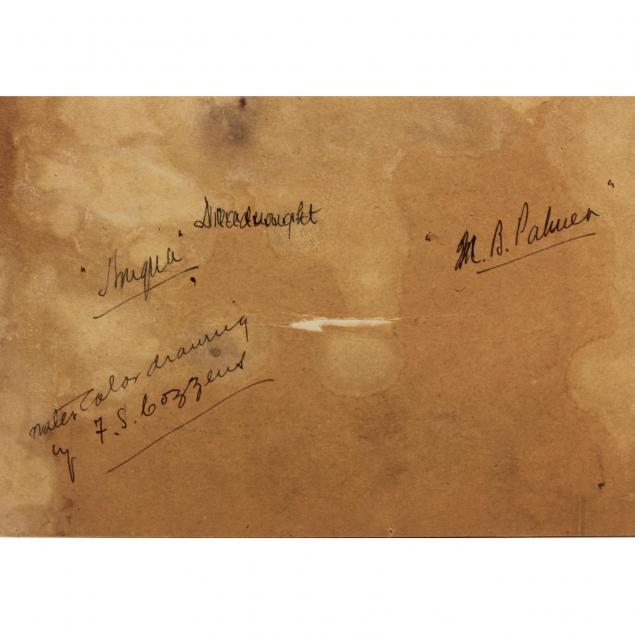 Dreadnought
"M. B. Palmer"
water color drawing
by F. S. Cozzens